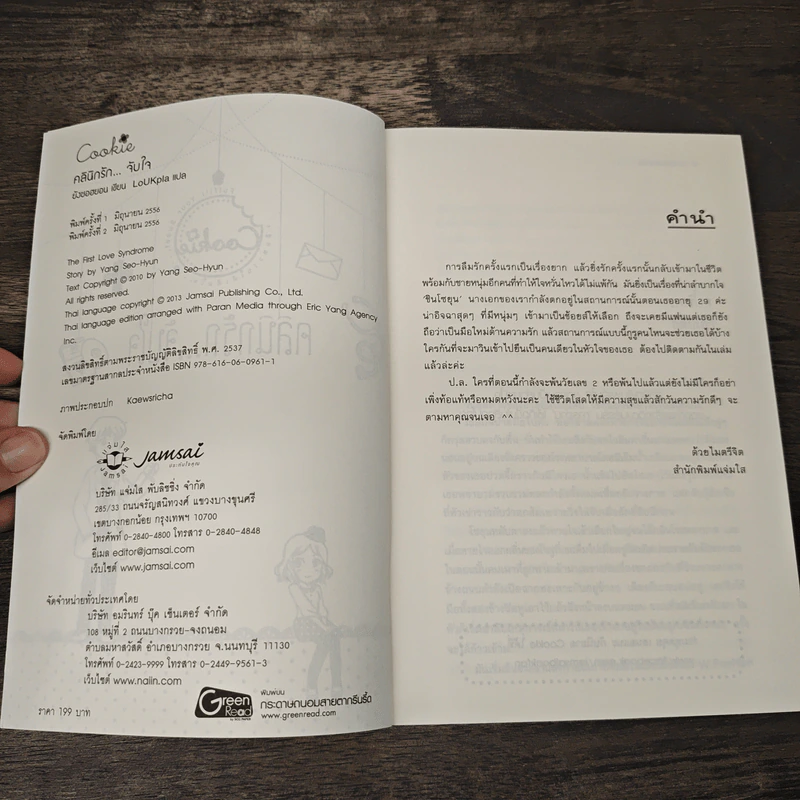 Cookie
คลินิกรัก... จับใจ
ยังซอฮยอน เขียน LoUKpla แปล
พิมพ์ครั้งที่ 1 มิถุนายน 2556
พิมพ์ครั้งที่ 2 มิถุนายน 2556
The First Love Syndrome
Story by Yang Seo-Hyun
Text Copyright © 2010 by Yang Seo-Hyun
All rights reserved.
Thai language copyright © 2013 Jamsai Publishing Co., Ltd.
Thai language edition arranged with Paran Media through Eric Yang Agency
Inc.
สงวนลิขสิทธิ์ตามพระราชบัญญัติลิขสิทธิ์ พ.ศ. 2537
เลขมาตรฐานสากลประจำหนังสือ ISBN 978-616-06-0961-1
ภาพประกอบปก Kaewsricha
จัดพิมพ์โดย
แจ่มใส
Jamsai
Jamsai
ประทับใจคุณ
บริษัท แจ่มใส พับลิชชิ่ง จำกัด
285/33 ถนนจรัญสนิทวงศ์ แขวงบางขุนศรี
เขตบางกอกน้อย กรุงเทพฯ 10700
โทรศัพท์ 0-2840-4800 โทรสาร 0-2840-4848
อีเมล editor@jamsai.com
เว็บไซต์ www.jamsai.com
จัดจำหน่ายทั่วประเทศโดย
บริษัท อมรินทร์ บุ๊ค เซ็นเตอร์ จำกัด
108 หมู่ที่ 2 ถนนบางกรวย-จงถนอม
ตำบลมหาสวัสดิ์ อำเภอบางกรวย จ.นนทบุรี 11130
โทรศัพท์ 0-2423-9999 โทรสาร 0-2449-9561-3
เว็บไซต์ www.naiin.com
ราคา 199 บาท
Green
Read
พิมพ์บน
กระดาษถนอมสายตากรีนรี้ด
www.greenread.com
คำนำ
การลืมรักครั้งแรกเป็นเรื่องยาก แล้วยิ่งรักครั้งแรกนั้นกลับเข้ามาในชีวิต
พร้อมกับชายหนุ่มอีกคนที่ทำให้ใจหวั่นไหวได้ไม่แพ้กัน มันยิ่งเป็นเรื่องที่น่าลำบากใจ
'ชินโซยุน' นางเอกของเรากำลังตกอยู่ในสถานการณ์นั้นตอนเธออายุ 29 ค่ะ
น่าอิจฉาสุดๆ ที่มีหนุ่มๆ เข้ามาเป็นช้อยส์ให้เลือก ถึงจะเคยมีแฟนแต่เธอก็ยัง
ถือว่าเป็นมือใหม่ด้านความรัก แล้วสถานการณ์แบบนี้กูรูคนไหนจะช่วยเธอได้บ้าง
ใครกันที่จะมาวินเข้าไปยืนเป็นคนเดียวในหัวใจของเธอ ต้องไปติดตามกันในเล่ม
แล้วล่ะค่ะ
ป.ล. ใครที่ตอนนี้กำลังจะพ้นวัยเลข 2 หรือพ้นไปแล้วแต่ยังไม่มีใครก็อย่า
เพิ่งท้อแท้หรือหมดหวังนะคะ ใช้ชีวิตโสดให้มีความสุขแล้วสักวันความรักดีๆ จะ
ตามหาคุณจนเจอ ^^
ด้วยไมตรีจิต
สำนักพิมพ์แจ่มใส